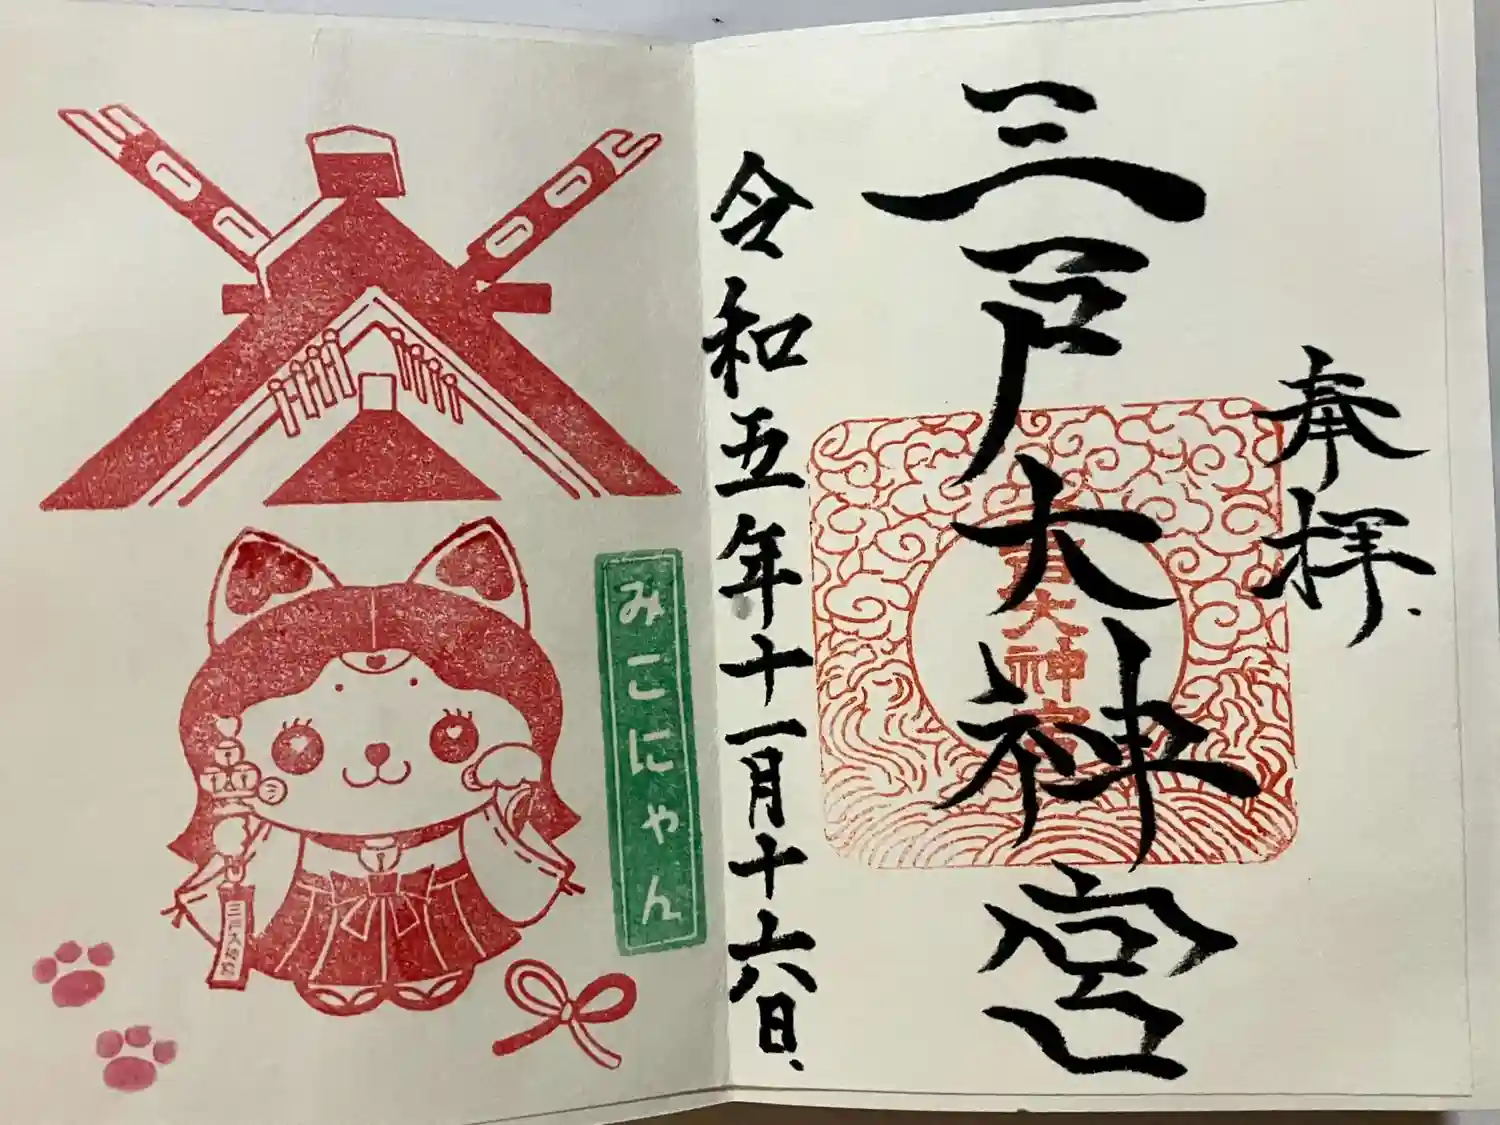 奉拝
三戸大神宮
三戸大神宮
令和五年十一月十六日
みこにゃん
三戸大神宮